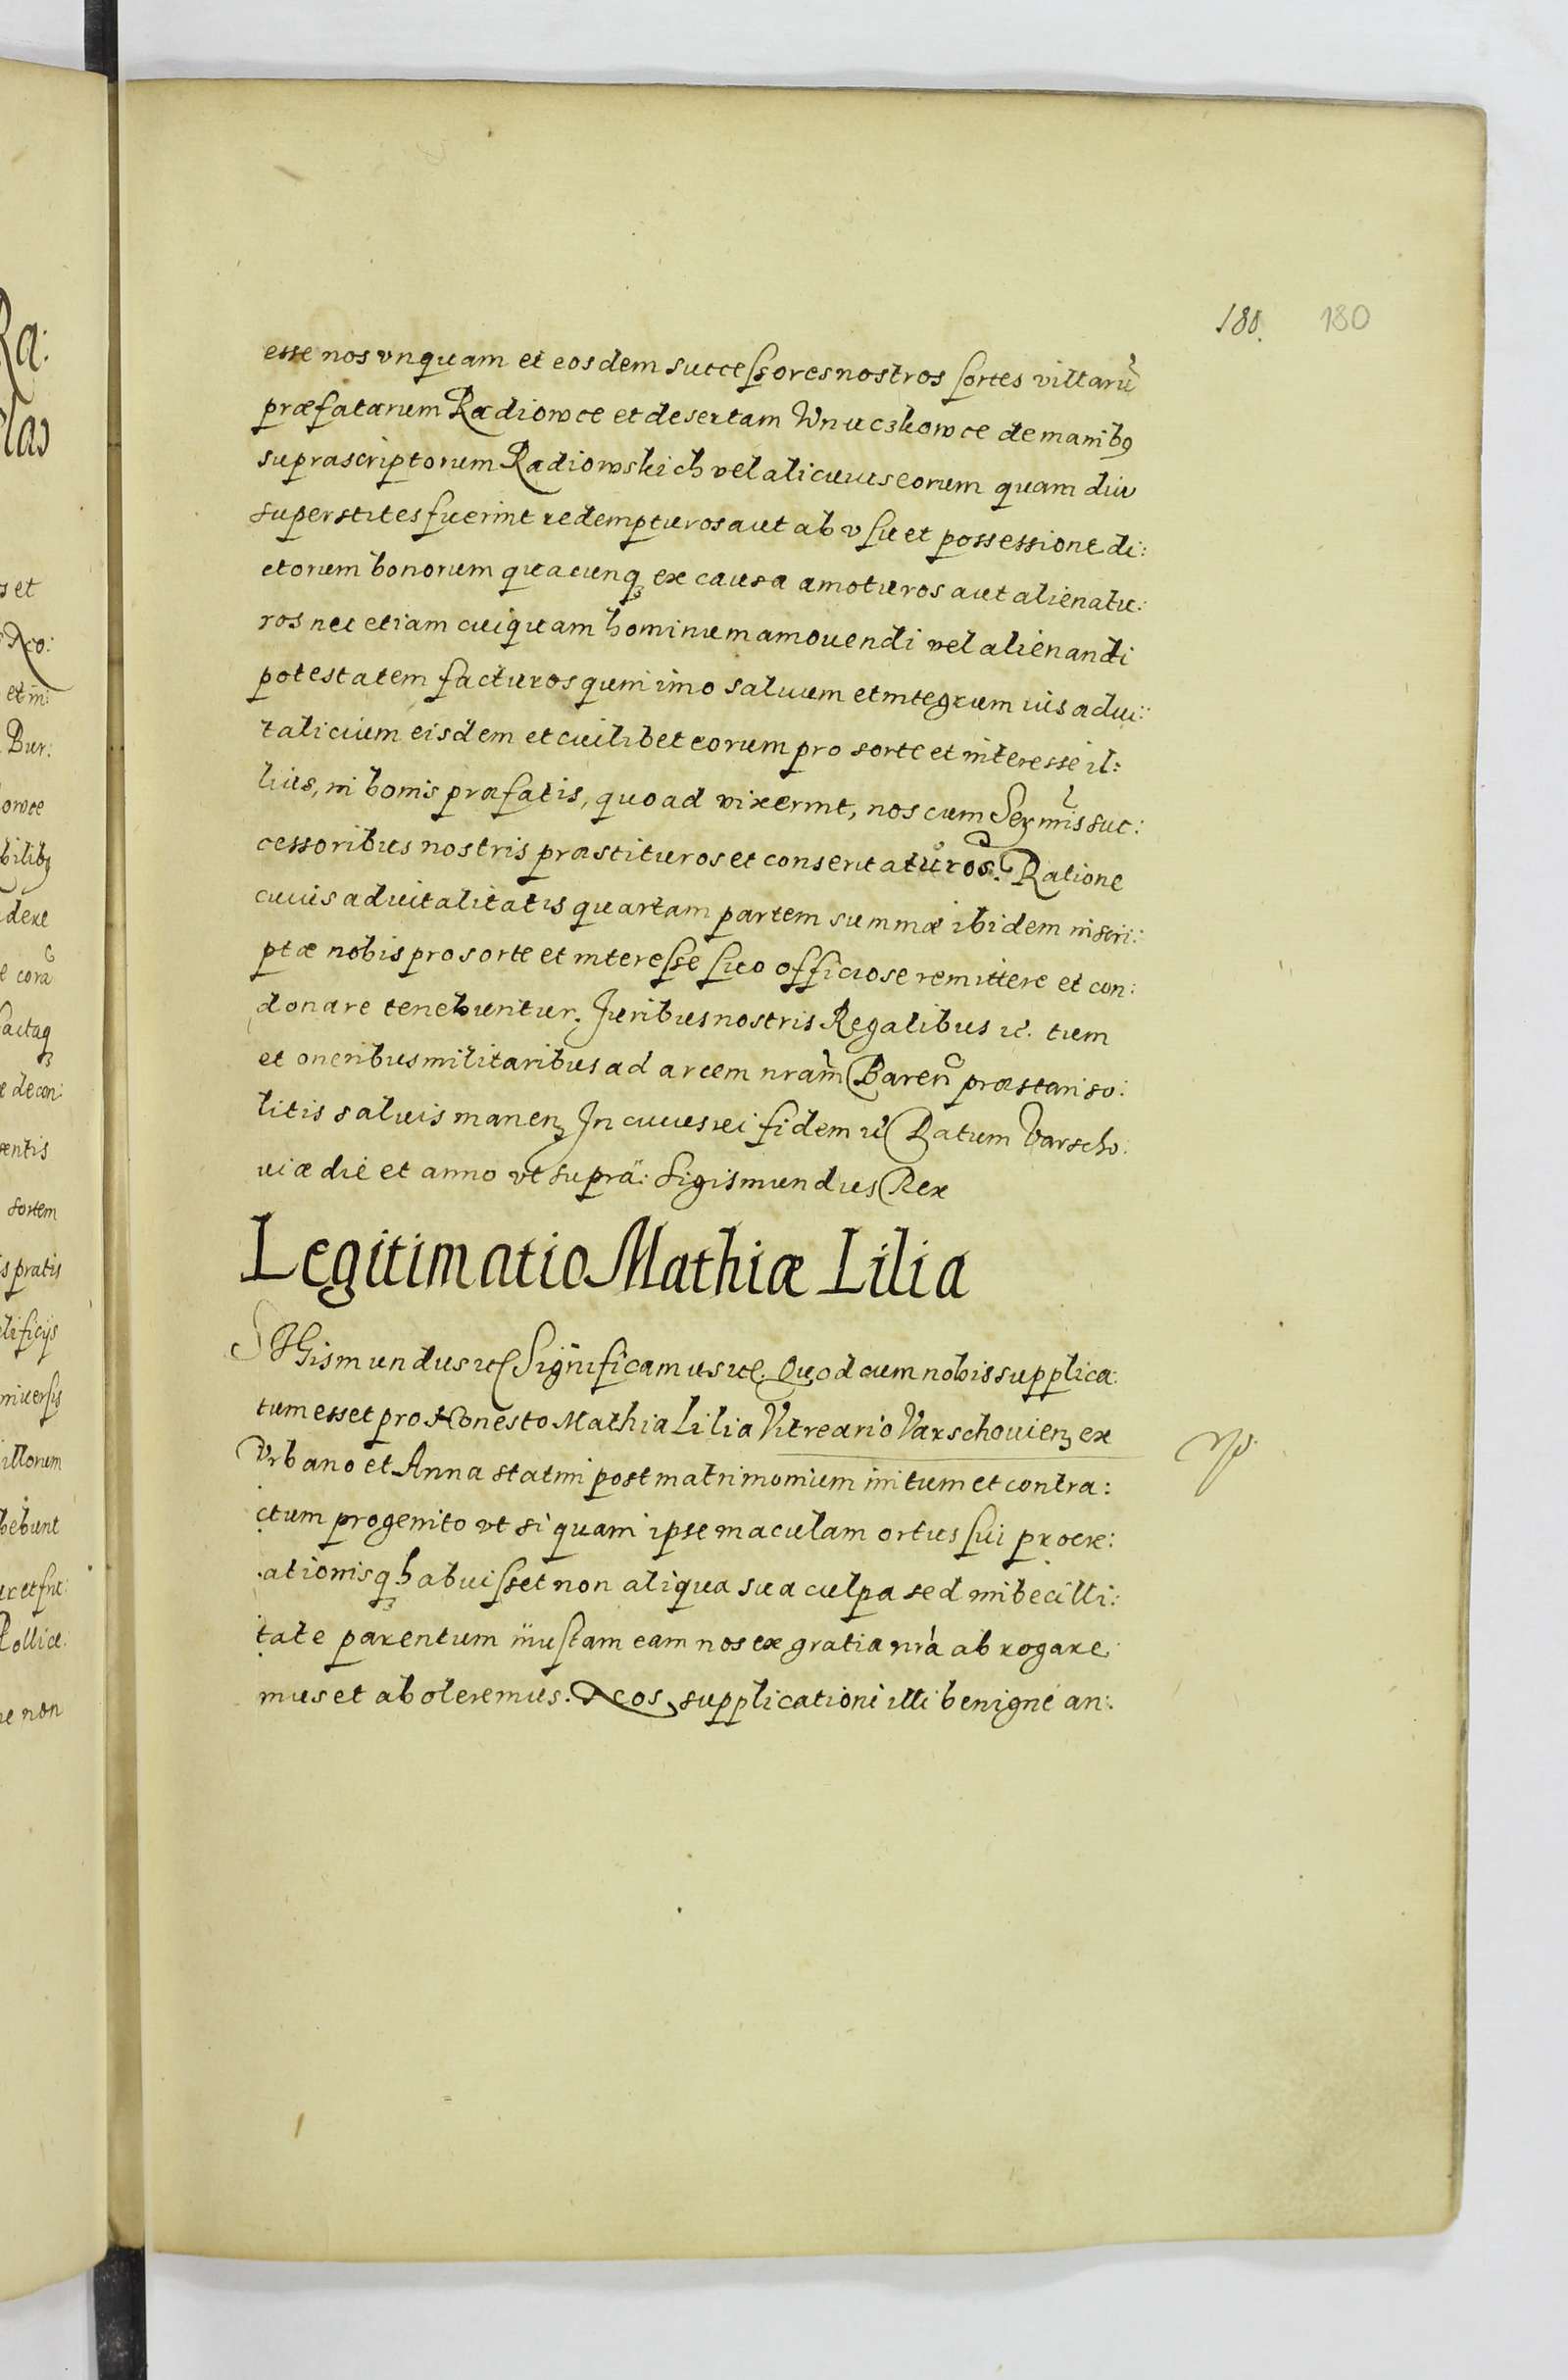 180. 180
esse nos vnquam et eosdem successores nostros sortes villarũ
præfatarum Radiowce et desertam Wnuczkowce de manibꝰ
suprascriptorum Radiowskich vel alicuius eorum quam diu
superstites fuerint redempturos aut ab vsu et possessione di:
ctorum bonorum quacunqꝫ ex causa amoturos aut alienatu:
ros nec etiam cuiquam hominum amouendi vel alienandi
potestatem facturos quin imo saluum et integrum ius adui:
talicium eisdem et cuilibet eorum pro sorte et interesse il:
lius, in bonis præfatis, quoad vixerint, nos cum Sermis suc:
cessoribus nostris præstituros et conseruaturos. Ratione
cuius aduitalitatis quartam partem summæ ibidem inscri:
ptæ nobis pro sorte et interesse suo officiose remittere et con:
donare tenebuntur. Juribus nostris Regalibus ꝛc. tum
et oneribus militaribus ad arcem nram̃ Bareñ præstari so:
litis saluis manenꝫ In cuius rei fidem ꝛc Datum Varscho:
uiæ die et anno vt supra: Sigismundus Rex
Legitimatio Mathiæ Lilia
SIGismundus ꝛc Significamus ꝛc. Quod cum nobis supplica:
tum esset pro Honesto Mathia Lilia Vitreario Varschouienꝫ ex
Vrbano et Anna statim post matrimonium initum et contra:
ctum progenito vt si quam ipse maculam ortus sui procre:
ationisqꝫ habuisset non aliqua sua culpa sed imbecilli:
tate parentum iniustam eam nos ex gratia nrã abrogare
mus et aboleremus. Nos supplicationi illi benigne an: